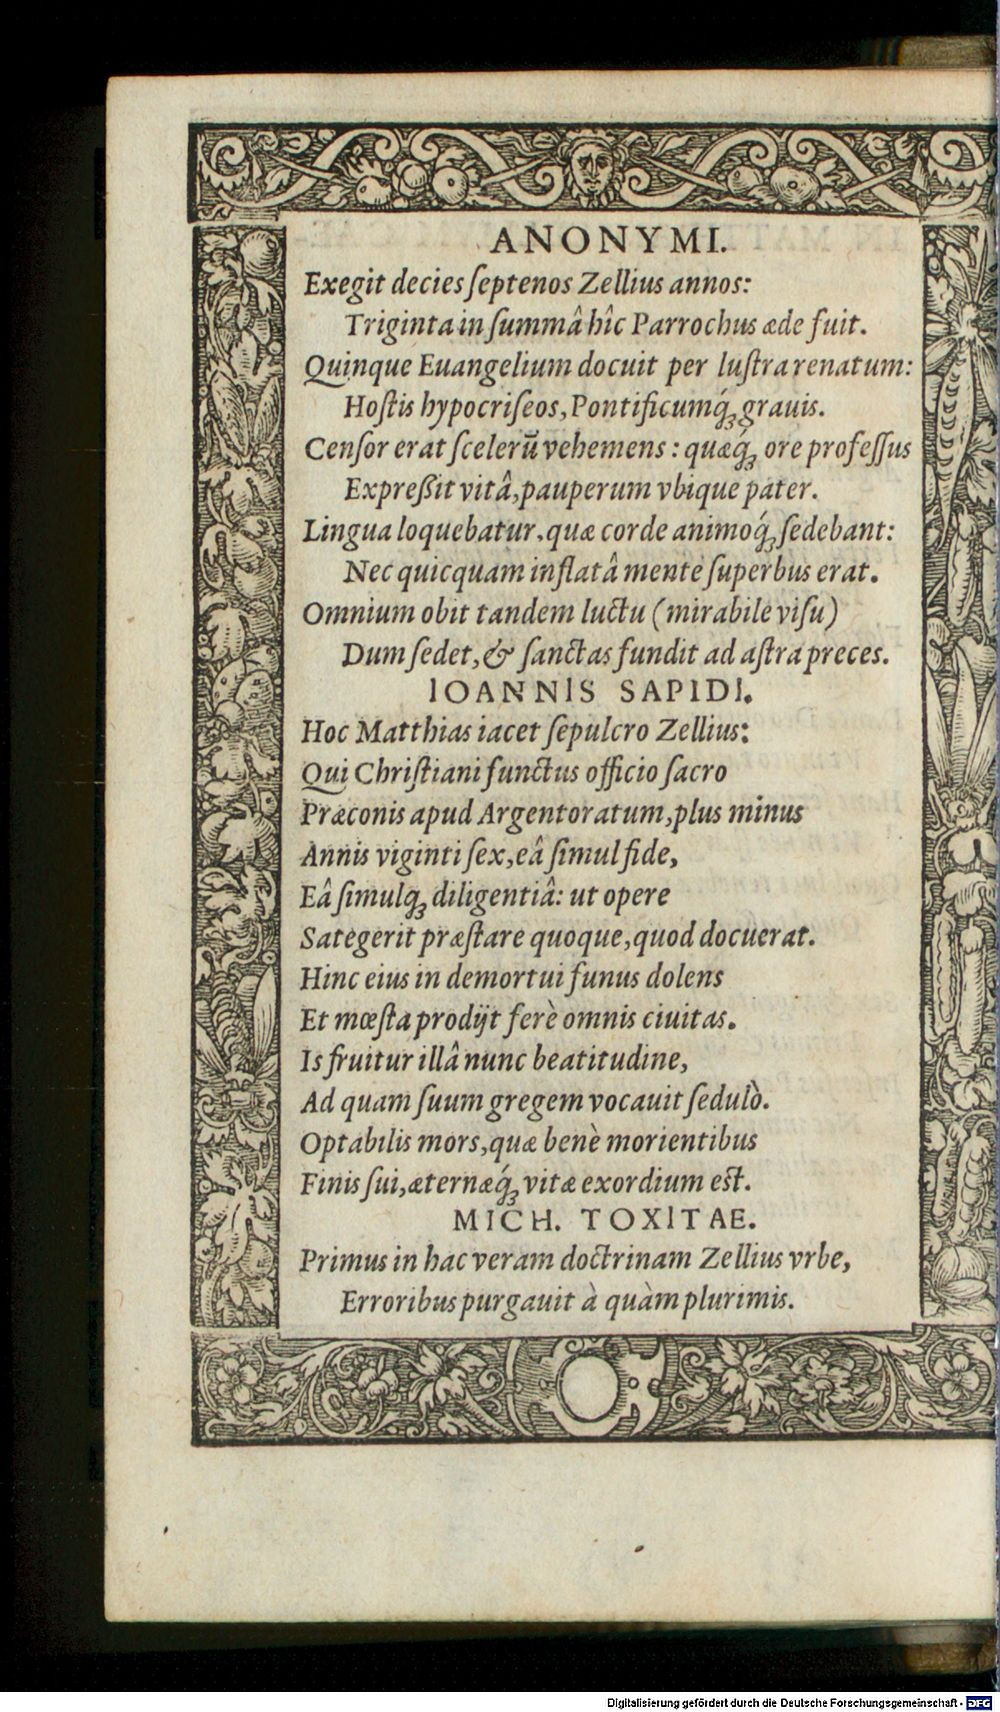 ANONYMI.
Exegit decies ſeptenos Zellius annos:
Triginta in ſummâ hîc Parrochus æde fuit.
Quinque Euangelium docuit per luſtra renatum:
Hoſtis hypocriſeos, Pontificumq́ꝫ grauis.
Cenſor erat ſcelerũ vehemens: quæq́ꝫ ore profeſſus
Expreßit vitâ, pauperum vbique pater.
Lingua loquebatur, quæ corde animoq́ꝫ ſedebant:
Nec quicquam inflatâ mente ſuperbus erat.
Omnium obit tandem luctu (mirabile viſu)
Dum ſedet, & ſanctas fundit ad aſtra preces.
IOANNIS SAPIDI.
Hoc Matthias iacet ſepulcro Zellius:
Qui Chriſtiani functus officio ſacro
Præconis apud Argentoratum, plus minus
Annis viginti ſex, eâ ſimul fide,
Eâ ſimulqꝫ diligentiâ: ut opere
Sategerit præſtare quoque, quod docuerat.
Hinc eius in demortui funus dolens
Et mœſta prodijt ferè omnis ciuitas.
Is fruitur illâ nunc beatitudine,
Ad quam ſuum gregem vocauit ſedulò.
Optabilis mors, quæ benè morientibus
Finis ſui, æternæq́ꝫ vitæ exordium eſt.
MICH. TOXITAE.
Primus in hac veram doctrinam Zellius vrbe,
Erroribus purgauit à quàm plurimis.
Digitalisierung gefördert durch die Deutsche Forschungsgemeinschaft - DFG